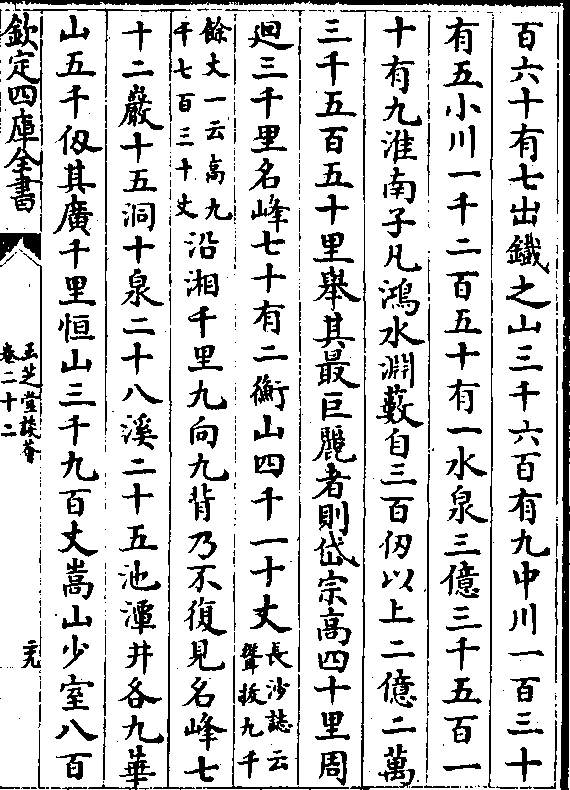 百六十有七出鐵之山三千六百有九中川一百三十
有五小川一千二百五十有一水泉三億三千五百一
十有九淮南子凡鴻水淵藪自三百仭以上二億二萬
三千五百五十里舉其最巨麗者則岱宗高四十里周
迴三千里名峰七十有二衡山四千一十丈長沙誌云聳拔九千
餘丈一云高九千七百三十丈沿湘千里九向九背乃不復見名峰七
十二巖十五洞十泉二十八溪二十五池潭井各九華
山五千仭其廣千里恒山三千九百丈嵩山少室八百
欽定四庫全書
玉芝堂談薈
卷二十二
二九